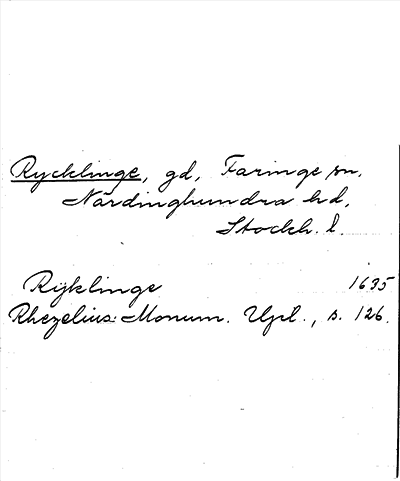 Rycklinge, gd, Faringe sn.
Närdinghundra hd,
Stockh. l.
Rÿklinge 1635
Rhezelius: Monum. Upl., s. 126.